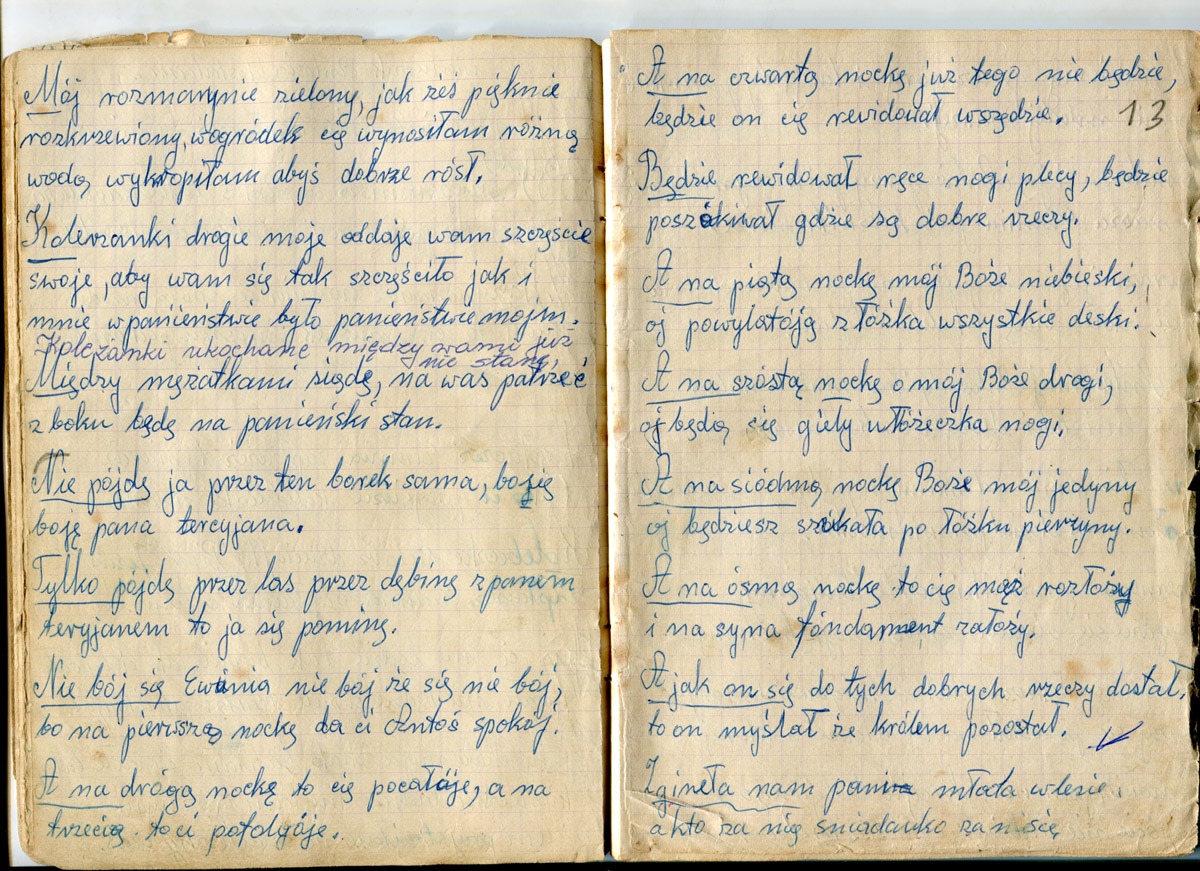 Mój rozmarynie zielony, jak żéś pięknie
rozkrzewiony, wogródek cię wynosiłam różną
wodą wykropiłam abyś dobrze róst.
Kolerzanki drogie moje oddaje wam szczęście
swoje, aby wam się tak szczęściło jak i
mnie wpanieństwie było panieństwie mojm.
Kolezanki ukochane między wami już
nie stanę,
Między mężatkami siędę, na was patrzeć
z boku będę na panieński stan.
Nie pójdę ja przez ten borek sama, bo się
boję pana tercyjana.
Tylko pójdę przez las przez dębinę z panem
tercyjanem to ja się pominę.
Nie bój się Ewunia nie bój że się nie bój,
bo na pierwszą nockę da ci Antoś spokój.
A na drógą nockę to cię pocałóje, a na
trzecią to ci pofolgóje.
A na czwartą nockę już tego nie będzie,
będzie on cię rewidował wszędzie.
13
Będzie rewidował ręce nogi plecy, będzie
poszókiwał gdzie są dobre rzeczy.
A na piątą nockę mój Boże niebieski,
oj powylatóją złóżka wszystkie deski.
A na szóstą nockę o mój Boże drogi,
oj będą się gieły ułóżeczka nogi.
A na siódmą nockę Boże mój jedyny
oj będziesz szukała po łóżku pierzyny.
A na ósmą nockę to cię mąż rozłoży
i na syna fóndament założy.
A jak on się do tych dobrych rzeczy dostał,
to on myślał że królem pozostał.
Zgineła nam panna młoda wlesie,
a kto za nią śniadanko zaniesie